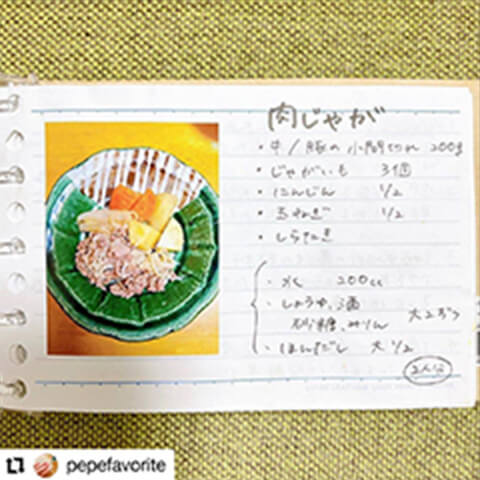 肉じゃが
・牛/豚の小間切れ 200g
・じゃがいも 3個
・にんじん 1/2
・玉ねぎ 1/2
・しらたき
・水 200cc
・しょうゆ、酒
砂糖、みりん 大2ずつ
・ほんだし 大1/2
2人分
pepefavorite